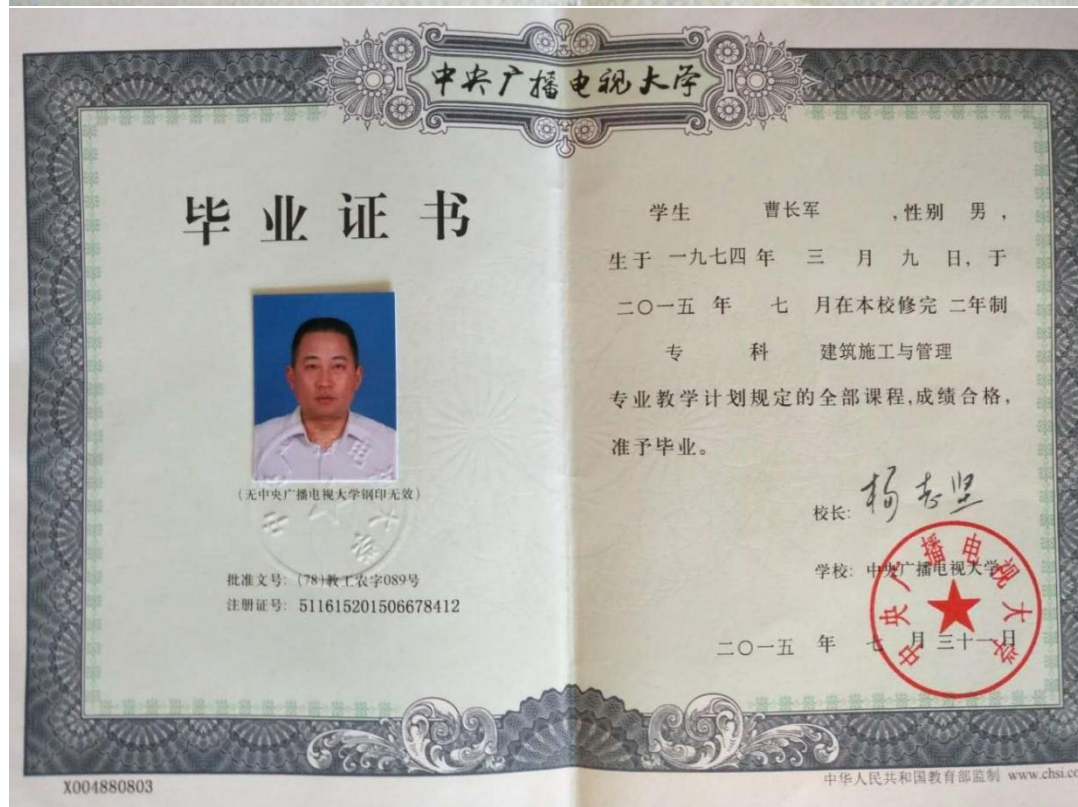 中央广播电视大学
毕业证书
(无中央广播电视大学钢印无效)
批准文号: (78)教工农字089号
注册证号: 511615201506678412
学生 曹长军 ,性别 男 ,
生于 一九七四 年 三 月 九 日, 于
二〇一五 年 七 月在本校修完 二年制
专 科 建筑施工与管理
专业教学计划规定的全部课程,成绩合格,
准予毕业。
校长: 杨志坚
学校: 中央广播电视大学
中央广播电视大学
二〇一五 年 七 月 三十一 日
X004880803
中华人民共和国教育部监制 www.chsi.co